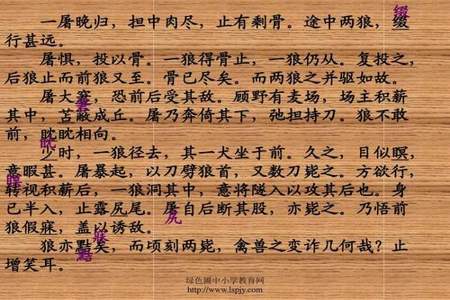 缀
一屠晚归，担中肉尽，止有剩骨。途中两狼，缀
行甚远。
屠惧，投以骨。一狼得骨止，一狼仍从。复投之，
后狼止而前狼又至。骨已尽矣。而两狼之并驱如故。
屠大窘，恐前后受其敌。顾野有麦场，场主积薪
其中，苫蔽成丘。屠乃奔倚其下，弛担持刀。狼不敢
前，眈眈相向。
少时，一狼径去，其一犬坐于前。久之，目似瞑，
意暇甚。屠暴起，以刀劈狼首，又数刀毙之。方欲行，
转视积薪后，一狼洞其中，意将隧入以攻其后也。身
已半入，止露尻尾。屠自后断其股，亦毙之。乃悟前
尻
狼假寐，盖以诱敌。
狼亦黠矣，而顷刻两毙，禽兽之变诈几何哉？止
增笑耳。
绿色圃中小学教育网
http://www.lspjy.com